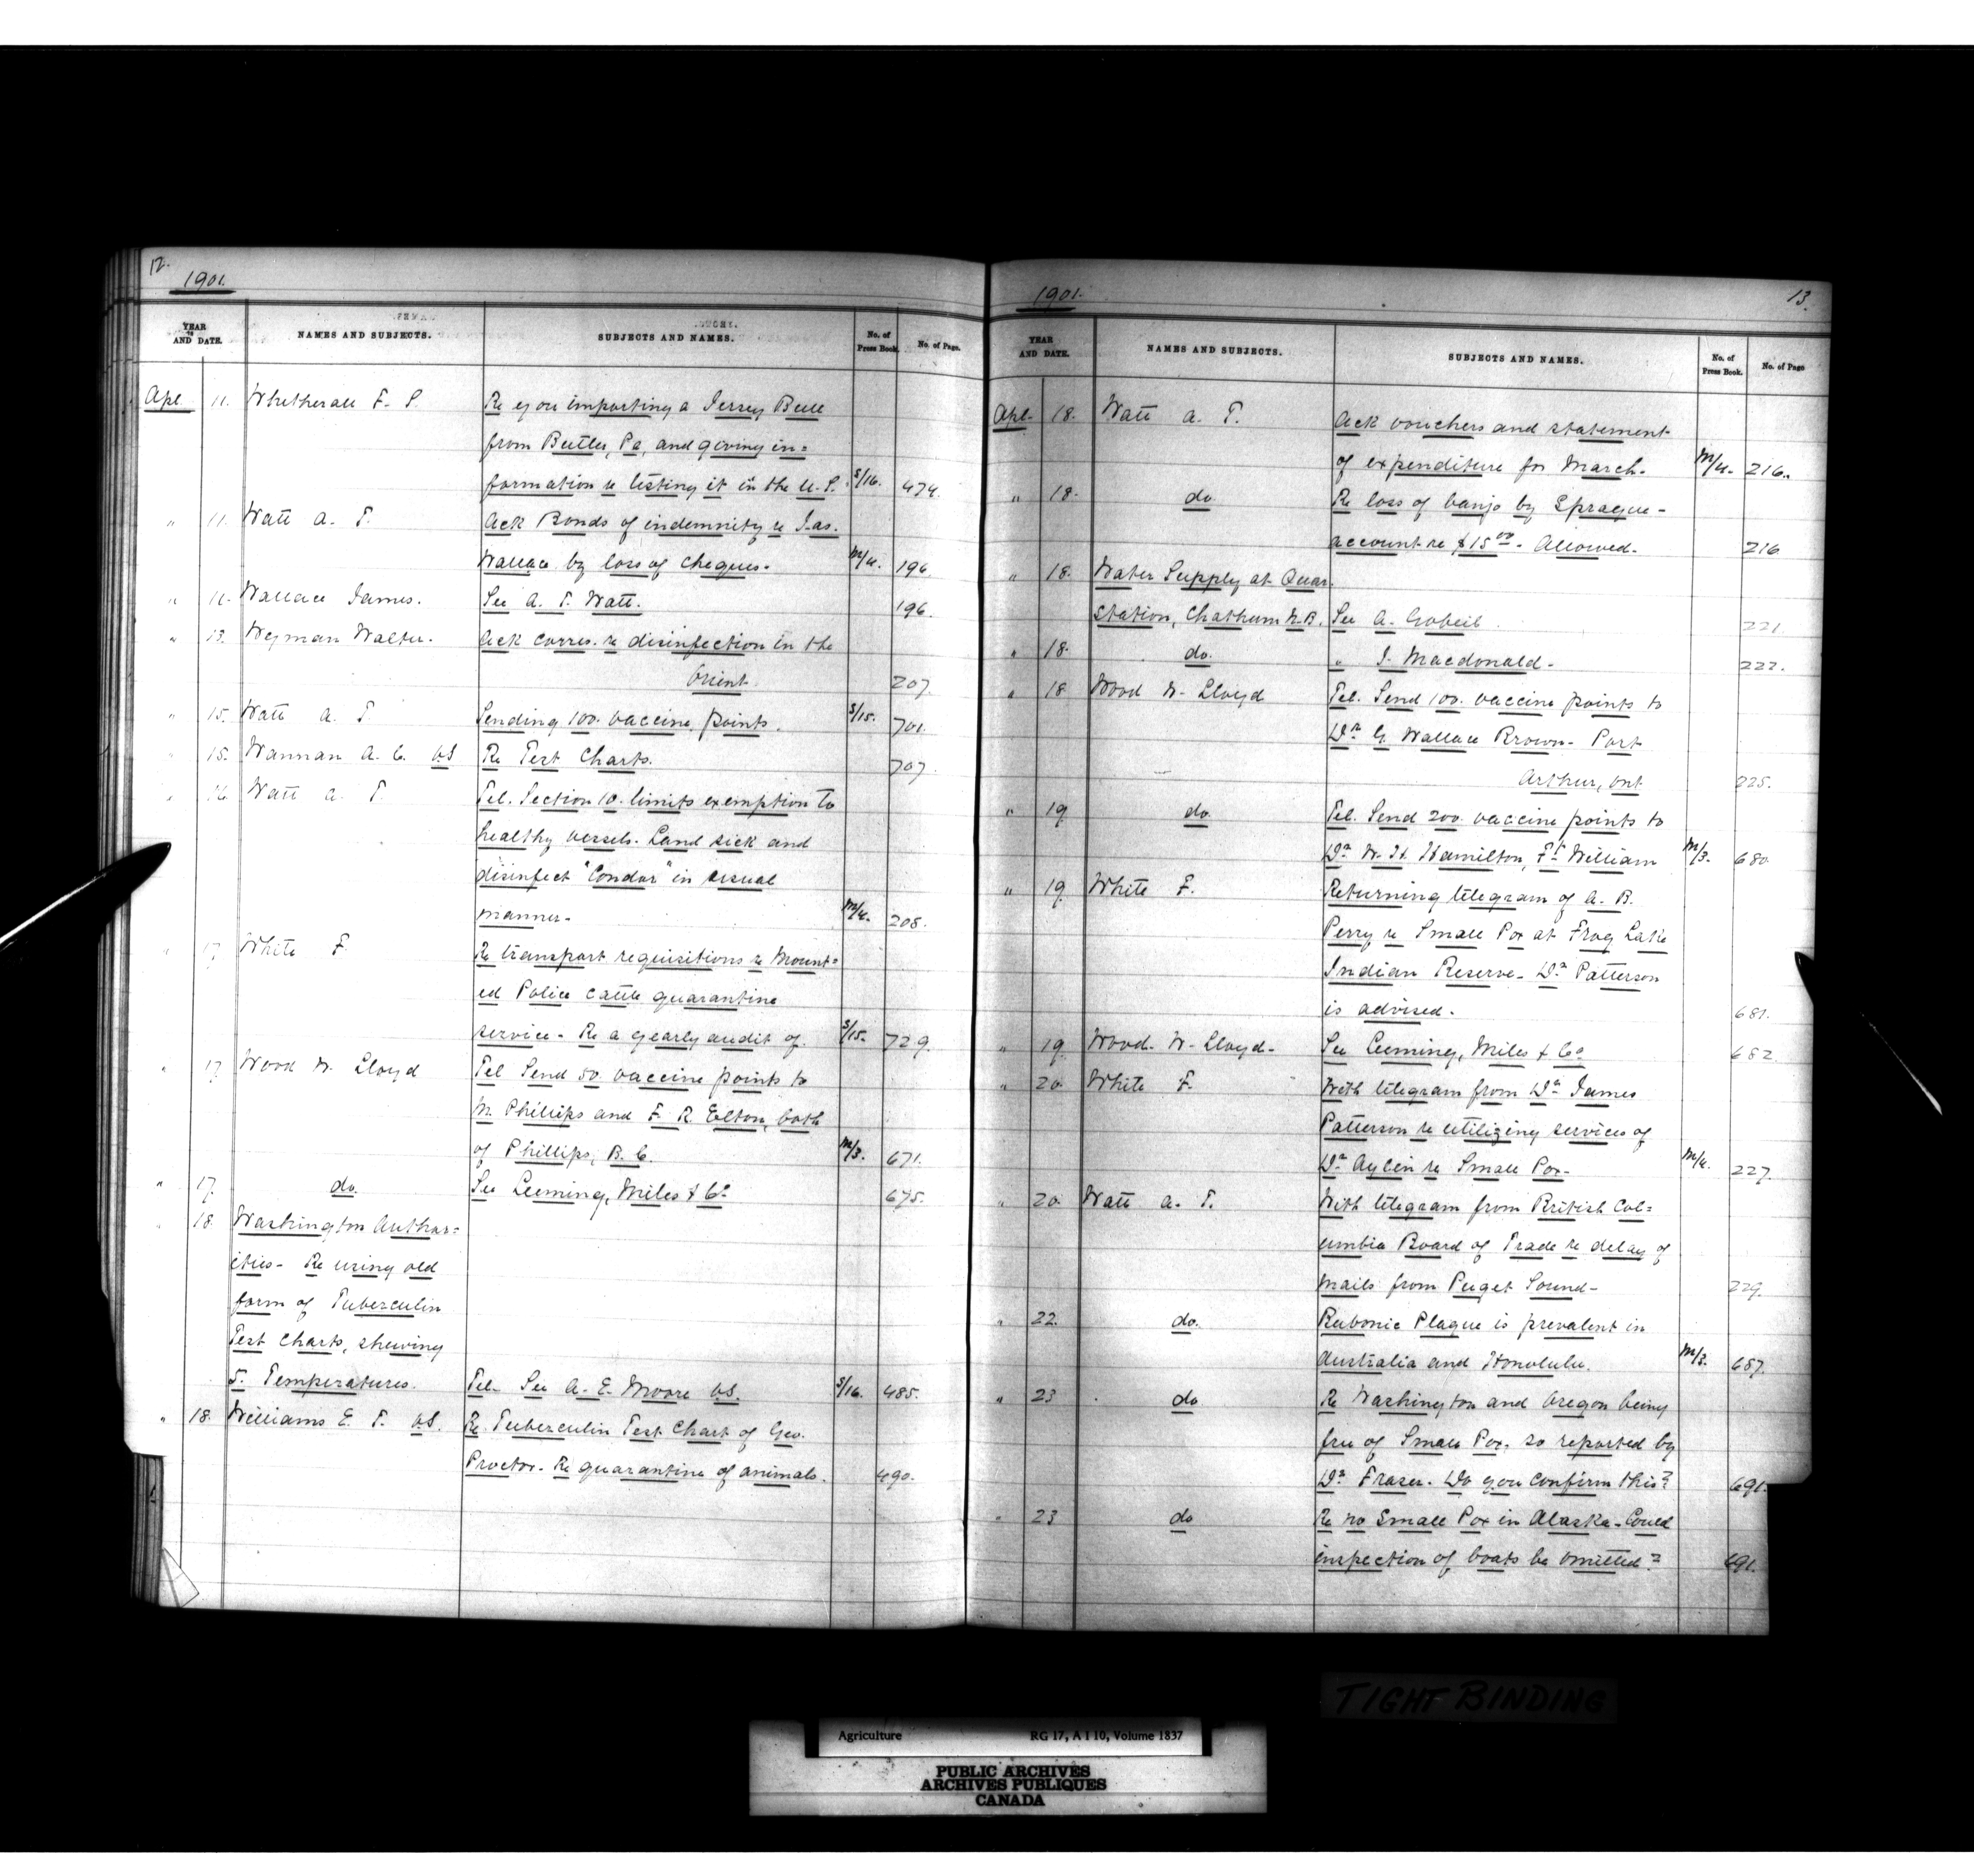 12.
1901.
YEAR AND DATE. NAMES AND SUBJECTS. SUBJECTS AND NAMES. No. of Press Book. No. of Page.
Apl 11. Whetherall F. S. Re you importing a Jersey Bull
from Butler, Pa, and giving in=
formation re testing it in the U.S. S/16. 474.
" 11. Watt A. T. Ack Bonds of indemnity re Jas.
Wallace by loss of cheques. M/4. 196
" 11. Wallace James. See A. T. Watt. 196.
" 13. Wyman Walter. Ack corres. re disinfection in the
Orient. 207.
" 15. Watt A. T Sending 100. vaccine points. S/15. 701.
" 15. Wannan A. C. VS Re Test Charts. 707.
" 16. Watt A. T. Tel. Section 10. limits exemption to
healthy vessels. Land sick and
disinfect "Condor" in usual
manner- M/4. 208.
" 17. White F. Re transport requisitions re Mount=
ed Police cattle quarantine
service- Re a yearly audit of. S/15. 729.
" 17. Wood W. Lloyd Tel Send 50. vaccine points to
M. Phillips and F. R. Elton, both
of Phillips, B. C. M/3. 671.
" 17. do. See Leeming, Miles & Co. 675.
" 18. Washington Author=
ities- Re using old
form of Tuberculin
Test Charts, shewing
5. Temperatures. Tel. See A. E. Moore VS. S/16. 485.
" 18. Williams E. T. VS. Re. Tuberculin Test Chart of Geo.
Proctor. Re quarantine of animals. 490.
1901. 13.
YEAR AND DATE. NAMES AND SUBJECTS. SUBJECTS AND NAMES. No. of Press Book. No. of Page
Apl. 18. Watt A. T. Ack vouchers and statement
of expenditure for March. M/4. 216.
" 18. do. Re loss of banjo by Sprague-
account re $15.00- Allowed. 216
" 18. Water Supply at Quar.
Station, Chatham N.B. See A. Gobeil. 221.
" 18. do. " J. Macdonald. 222.
" 18 Wood W. Lloyd Tel. Send 100. vaccine points to
Dr. G. Wallace Brown- Port
Arthur, Ont 225.
" 19. do. Tel. Send 200. vaccine points to
Dr. W. H. Hamilton, Ft. William M/3. 680.
" 19. White F. Returning telegram of A. B.
Perry re Small Pox at Frog Lake
Indian Reserve- Dr. Patterson
is advised. 681.
" 19. Wood. W. Lloyd- See Leeming, Miles & Co. 682.
" 20. White F. With telegram from Dr. James
Patterson re utilizing services of
Dr. Aylen re Small Pox- M/4. 227.
" 20. Watt A. T. With telegram from British Col=
umbia Board of Trade re delay of
mails from Puget Sound- 229.
" 22. do. Bubonic Plague is prevalent in
Australia and Honolulu. M/3. 687.
" 23 do Re Washington and Oregon being
free of Small Pox. so reported by
Dr. Fraser. Do you confirm this? 691.
" 23 do Re no Small Pox in Alaska- Could
inspection of boats be omitted? 691.
TIGHT BINDING
Agriculture RG 17, A I 10, Volume 1837
PUBLIC ARCHIVES
ARCHIVES PUBLIQUES
CANADA